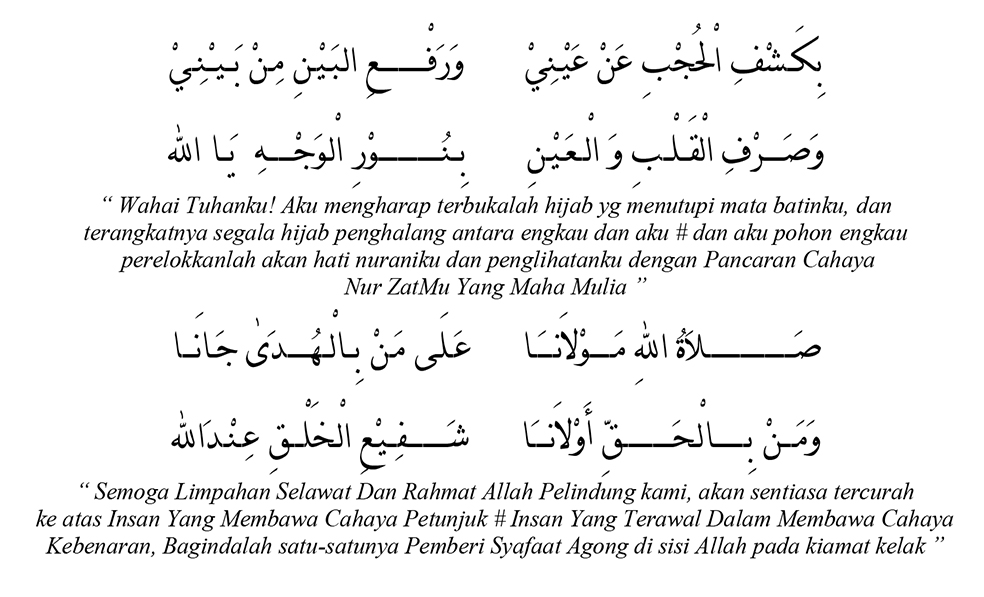 بِكَشْفِ الْحُجْبِ عَنْ عَيْنِيْ وَرَفْعِ البَيْنِ مِنْ بَيْنِيْ
وَصَرْفِ الْقَلْبِ وَ الْعَيْنِ بِنُوْرِ الْوَجْهِ يَا الله
“ Wahai Tuhanku! Aku mengharap terbukalah hijab yg menutupi mata batinku, dan
terangkatnya segala hijab penghalang antara engkau dan aku # dan aku pohon engkau
perelokkanlah akan hati nuraniku dan penglihatanku dengan Pancaran Cahaya
Nur ZatMu Yang Maha Mulia ”
صَلاَةُ اللهِ مَوْلاَنَا عَلَى مَنْ بِالْهُدَىٰ جَانَا
وَمَنْ بِالْحَقِّ أَوْلاَنَا شَفِيْعِ الْخَلْقِ عِنْدَالله
“ Semoga Limpahan Selawat Dan Rahmat Allah Pelindung kami, akan sentiasa tercurah
ke atas Insan Yang Membawa Cahaya Petunjuk # Insan Yang Terawal Dalam Membawa Cahaya
Kebenaran, Bagindalah satu-satunya Pemberi Syafaat Agong di sisi Allah pada kiamat kelak ”